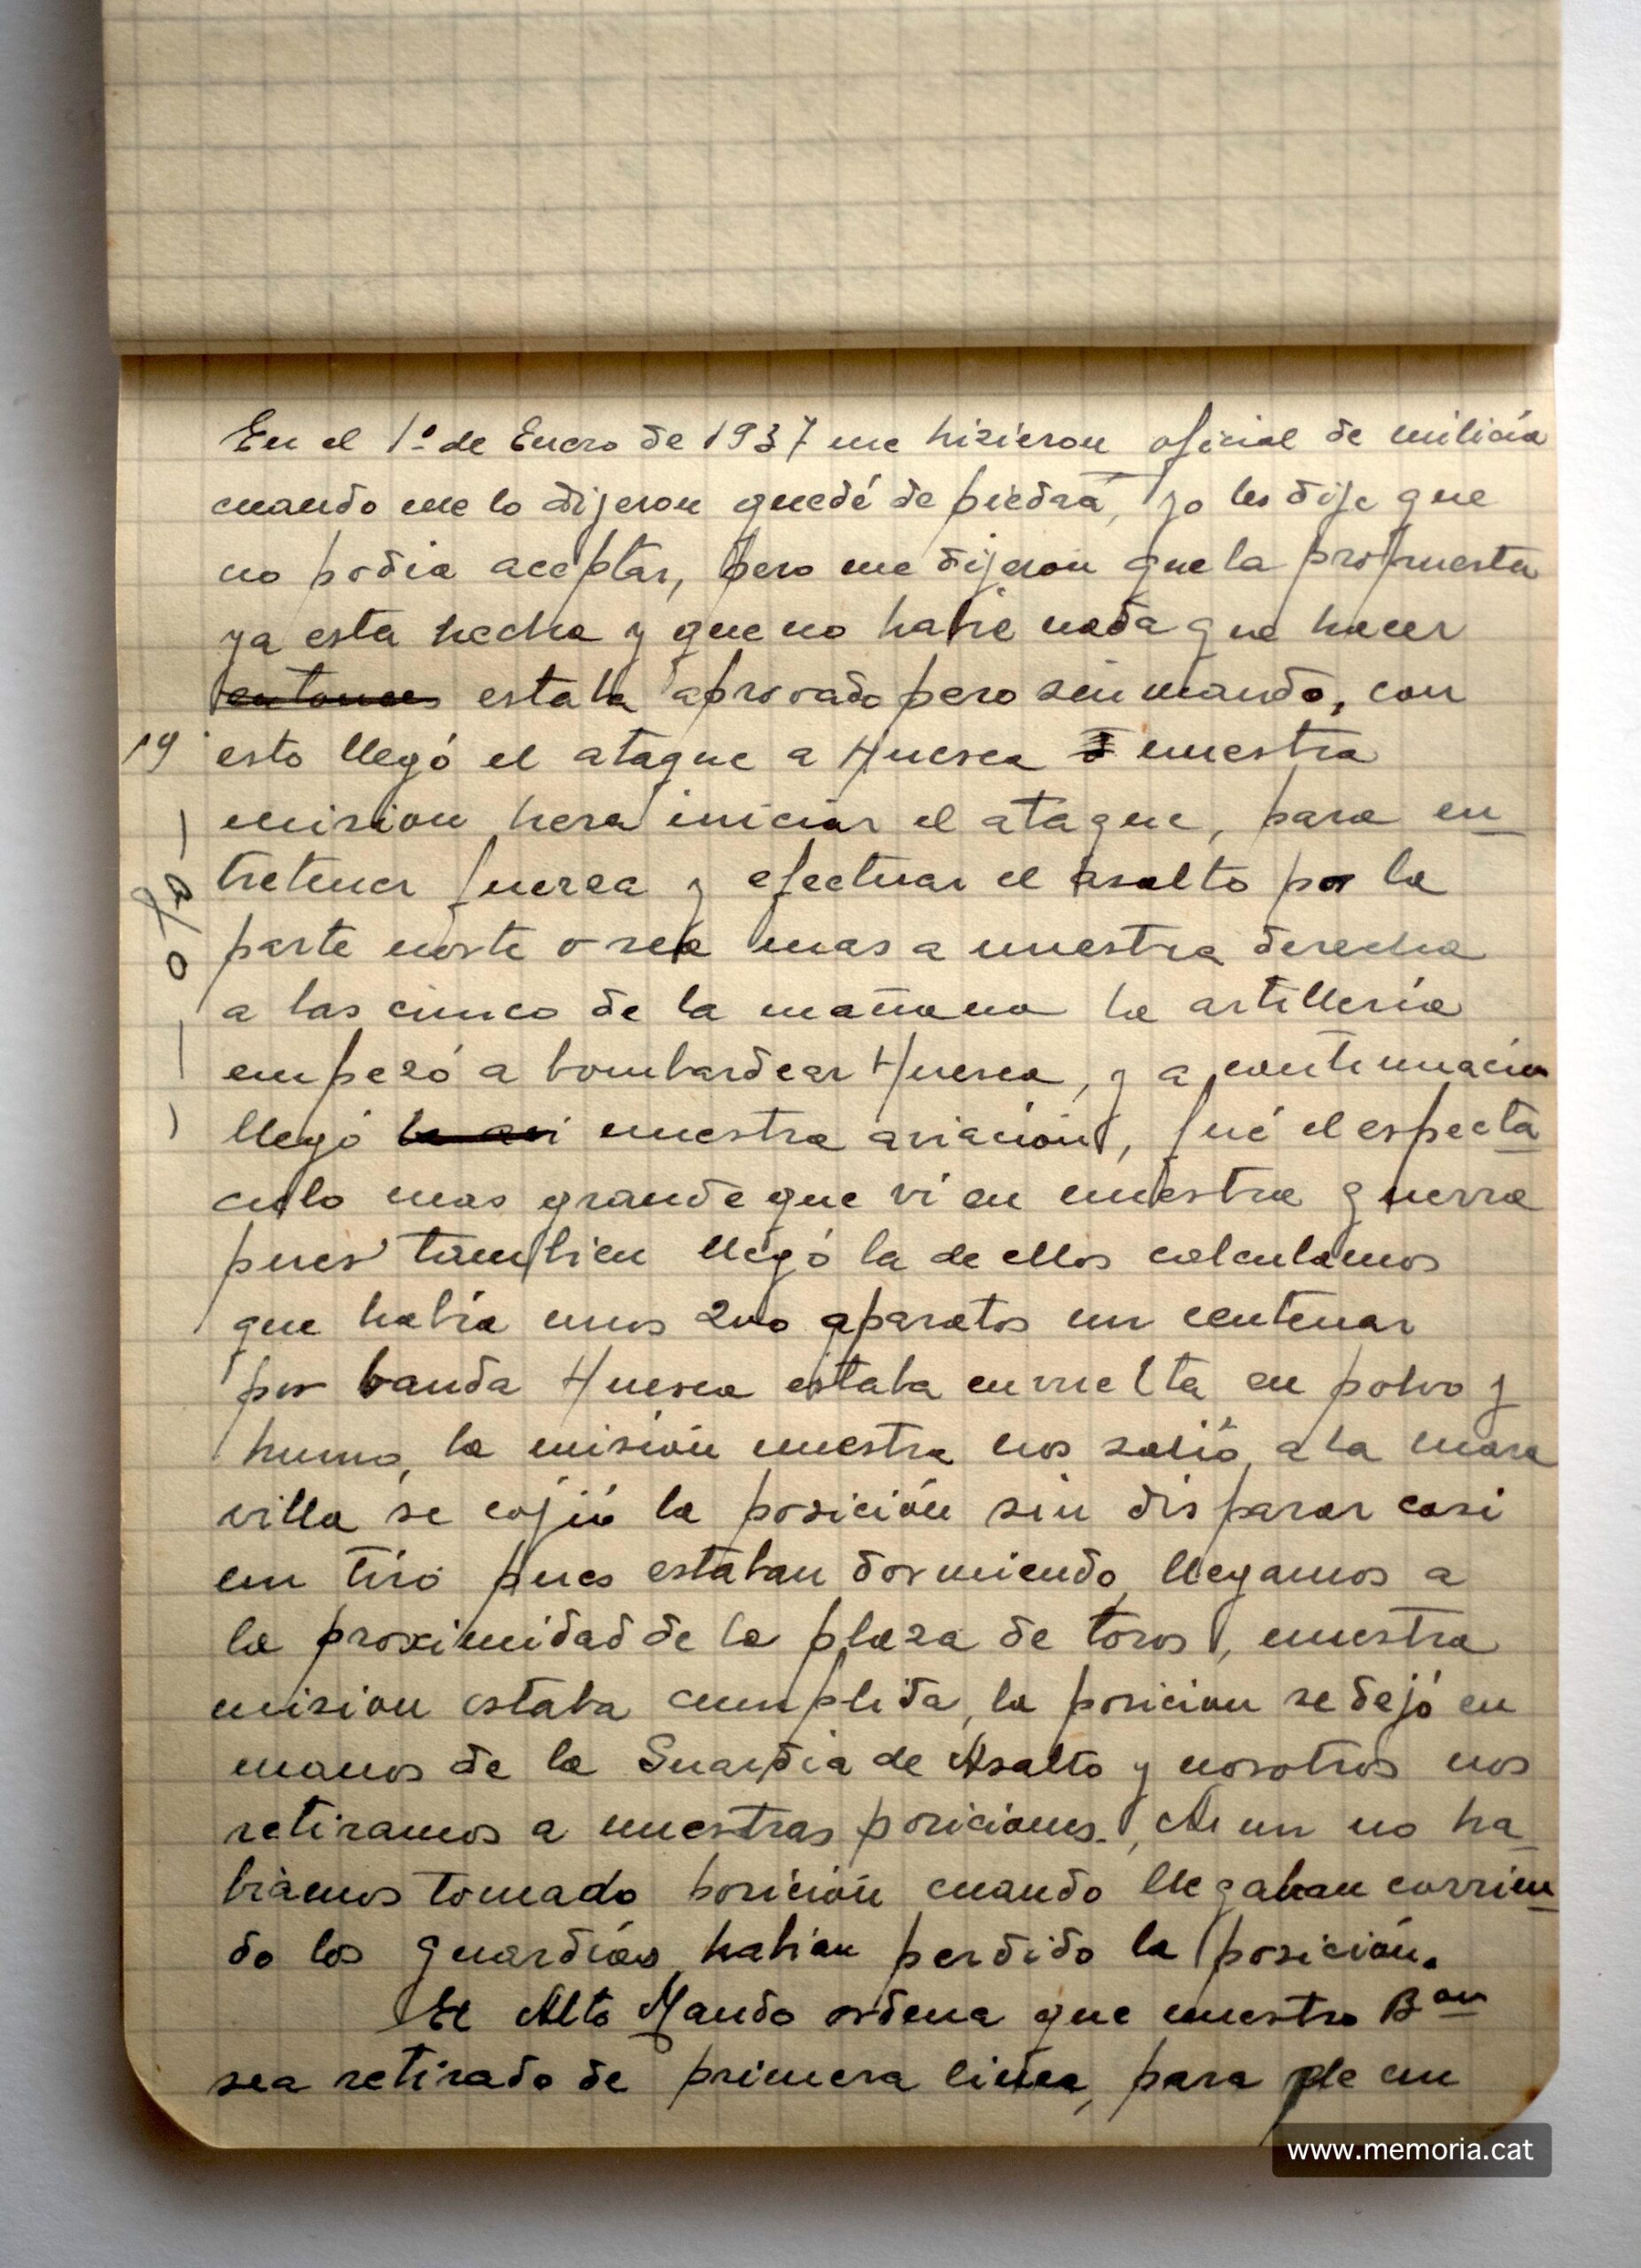 En el 1º de Enero de 1937 me hizieron oficial de milicia
cuando me lo dijeron quedé de piedra, yo les dije que
no podia aceptar, pero me dijeron que la propuesta
ya esta hecha y que no habie nada que hacer
entonces estaba aprovado pero sin mando, con
19 esto llegó el ataque a Huesca nuestra
mision hera iniciar el ataque, para en
tretener fuerza y efectuar el asalto por la
parte norte o sea mas a nuestra derecha
a las cinco de la mañana la artilleria
empezó a bombardear Huesca, y a continuación
llegó la avi nuestra aviación, fué el especta
culo mas grande que vi en nuestra guerra
pues tambien llegó la de ellos calculamos
que habia unos 200 aparatos un centenar
por banda Huesca estaba envuelta en polvo y
humo, la misión nuestra nos salió a la mara
villa se cojió la posición sin disparar casi
un tiro pues estaban dormiendo, llegamos a
la proximidad de la plaza de toros, nuestra
mision estaba cumplida, la posicion se dejó en
manos de la Guardia de Asalto y nosotros nos
retiramos a nuestras posiciones. Aun no ha
biamos tomado posición cuando llegaban corrien
do los guardias, habian perdido la posición.
El Alto Mando ordena que nuestro Bon
sea retirado de primera linea, para de un
www.memoria.cat